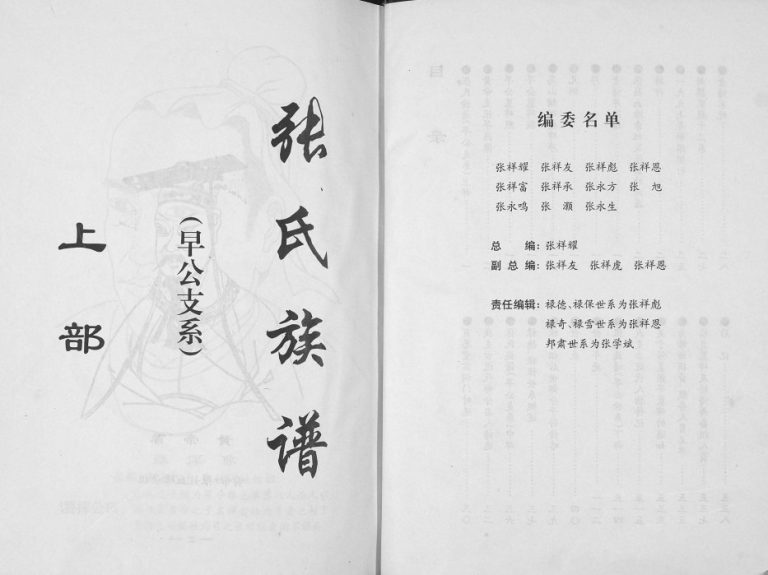 张氏族谱
（早公支系）
上部
编委名单
张祥耀 张祥友 张祥彪 张祥恩
张祥富 张祥承 张永方 张 旭
张永鸣 张 灏 张永生
总 编：张祥耀
副总编：张祥友 张祥虎 张祥恩
责任编辑：禄德、禄保世系为张祥彪
禄奇、禄雪世系为张祥恩
邦肃世系为张学斌